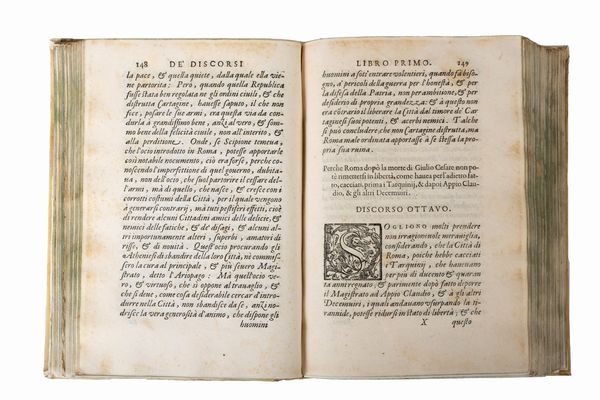 148 DE' DISCORSI
la pace, & questa quiete, dalla quale ella vie-
ne partorita: Però, quando quella Republica
fusse stata ben regolata ne gli ordini ciuili, & che
distrutta Cartagine, hauesse saputo, il che non
fice, posare le sue armi, era questa via da con-
durla à grandissimo bene, anzi al vero, & som-
mo bene della felicità ciuile, non all'interito, &
alla perditione. Onde, se Scipione temeua,
che l'ocio introdotto in Roma, potesse apportarle
così notabile nocumento, ciò era forse, perche co-
noscendo l'imperfettione di quel gouerno, dubita-
ua, non dell'ocio, che suol partorire il cessare del-
l'armi, mà di quello, che nasce, & cresce con i
corrotti costumi della Città, per il quale vengono
à generarsi contrarij, mà tutti pestiferi effetti, cioè
di rendere alcuni Cittadini amici delle delicie, &
nemici delle fatiche, & de' disagi, & alcuni al-
tri importunamente altieri, superbi, amatori di
risse, & di nouità. Quest'ocio procurando gli
Atheniesi di sbandire della loro Città, ne commi-
sero la cura al principale, & più seuero Magi-
strato, detto l'Ariopago: Mà quell'ocio ve-
ro, & virtuoso, che si oppone al trauaglio, &
che si deue, come cosa desiderabile cercar d'intro-
durre nella Città, non sbandisce da se, anzi nu-
drisce la vera generosità d'animo, che dispone gli
huomini
LIBRO PRIMO. 149
huomini a sott'entrare volentieri, quando fà biso-
gno, a' pericoli della guerra per l'honestà, & per
la difesa della Patria, non per ambitione, & per
desiderio di propria grandezza: & à questo non
era cōtrario il liberare la Città dal timore de' Car-
taginesi suoi potenti, & acerbi nemici. Talche
si può concludere, che non Cartagine distrutta, ma
Roma male ordinata apportasse à se stessa la pro-
pria sua ruina.
Perche Roma dopò la morte di Giulio Cesare non po-
tè rimettersi in libertà, come hauea per l'adietro fat-
to, cacciati, prima i Tarquinij, & dapoi Appio Clau-
dio, & gli altri Decemuiri.
DISCORSO OTTAVO.
SOGLIONO molti prendere
non irragioneuole merauiglia,
considerando, che la Città di
Roma, poiche hebbe cacciati
i Tarquinij, che haueuano
per più di ducento & quaran-
ta anni regnato; & parimente dopò fatto deporre
il Magistrato ad Appio Claudio, & à gli altri
Decemuiri, i quali andauano vsurpando la ti-
rannide, potesse ridursi in stato di libertà; & che
X questo